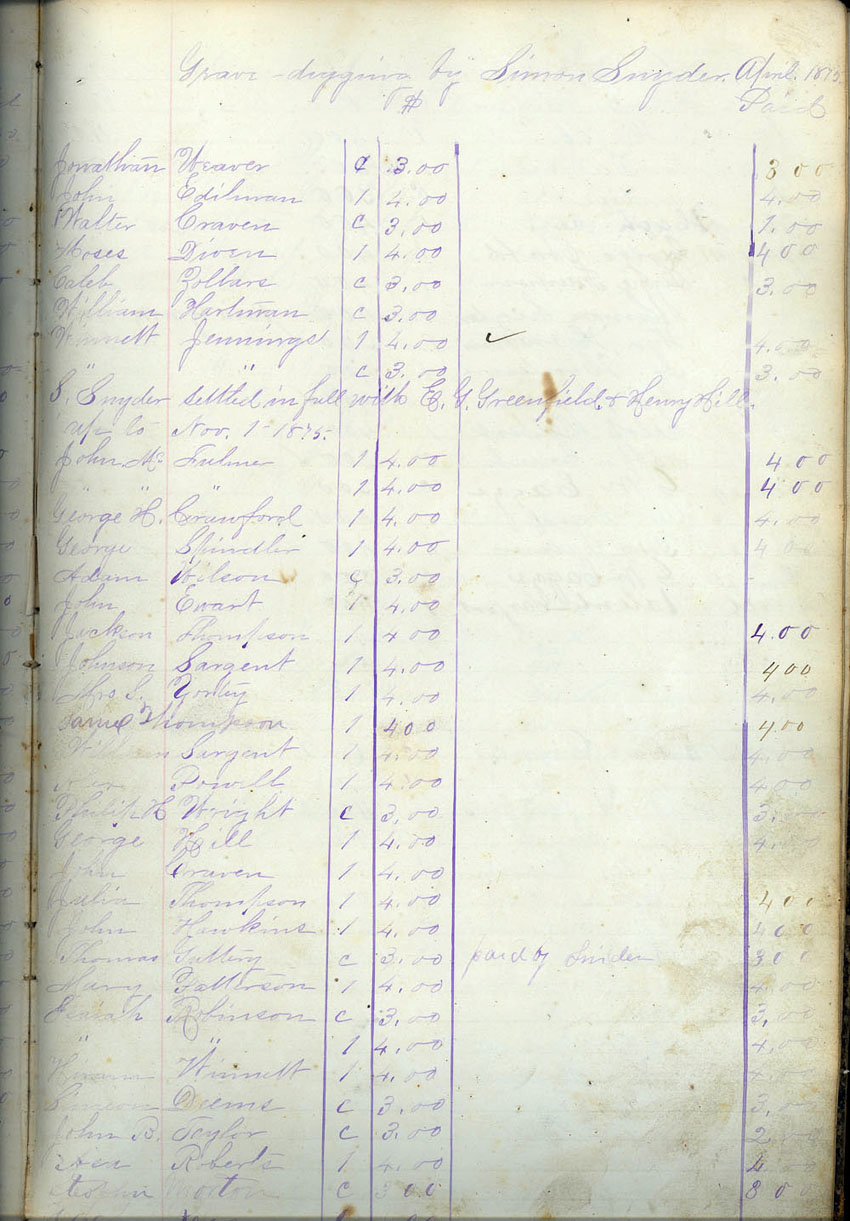 Grave-digging by Simon Snyder. April. 1875
$ Paid
Jonathan Weaver c 3.00 3 00
John Edilman 1 4.00 4.00
Walter Craven c 3.00 1.00
Moses Diven 1 4.00 4 00
Caleb Zollars c 3.00 3.00
William Hartman c 3.00
Winnett Jennings 1 4.00 ✓ 4.00
" " c 3.00 3.00
S. Snyder settled in full with E. G. Greenfield. & Henry Hill.
up to Nov. 1 - 1875.
John Mc Fulmer 1 4.00 4 00
" " " 1 4.00 4 00
George H. Crawford 1 4.00 4.00
George Spindler 1 4.00 4 00
Adam Wilson c 3.00
John Ewart 1 4.00
Jackson Thompson 1 4 00 4.00
Johnson Sargent 1 4.00 4 00
Mrs S. 1 4.00 4.00
Thompson 1 4 00 4.00
William Sargent 1 4.00 4.00
Powell 1 4.00 4 00
Philip H Wright c 3.00 3.
George Hill 1 4.00 4.
John Craven 1 4.00
Julia Thompson 1 4.00 4 00
John Hawkins 1 4.00 4 00
Thomas Guttery c 3.00 paid by Snider 3 00
Mary Patterson 1 4.00 4.00
Isaiah Robinson c 3.00 3.00
" " 1 4.00 4.00
Hiram Winnett 1 4.00 4.00
Simeon Deems c 3.00 3.00
John B. Taylor c 3.00 2.00
Roberts 1 4.00 4.00
Morton c 3 00 3 0